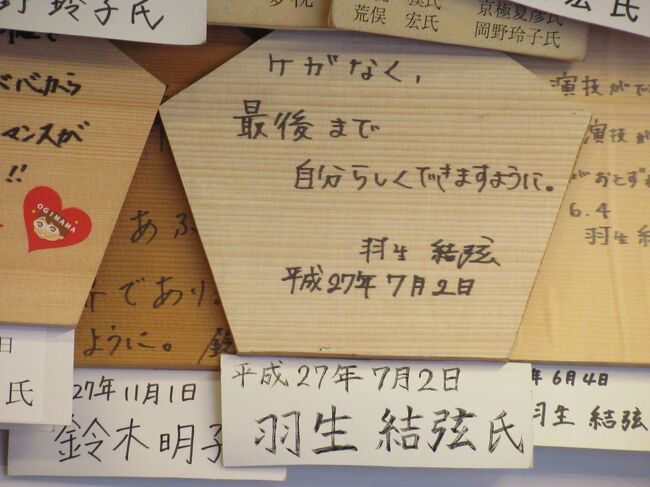 玲子氏
荒俣 宏氏
京極夏彦氏
岡野玲子氏
宏氏
から
マンスが
!!
OGIMAMA
ケガなく,
最後まで
自分らしくできますように。
羽生 結弦
平成27年7月2日
演技がで
演技が
がおとずれ
6.4
羽生 結
あふ
であり
ように。
日
氏
27年11月1日
鈴木明子
平成27年7月2日
羽生結弦氏
年6月4日
羽生 結弦